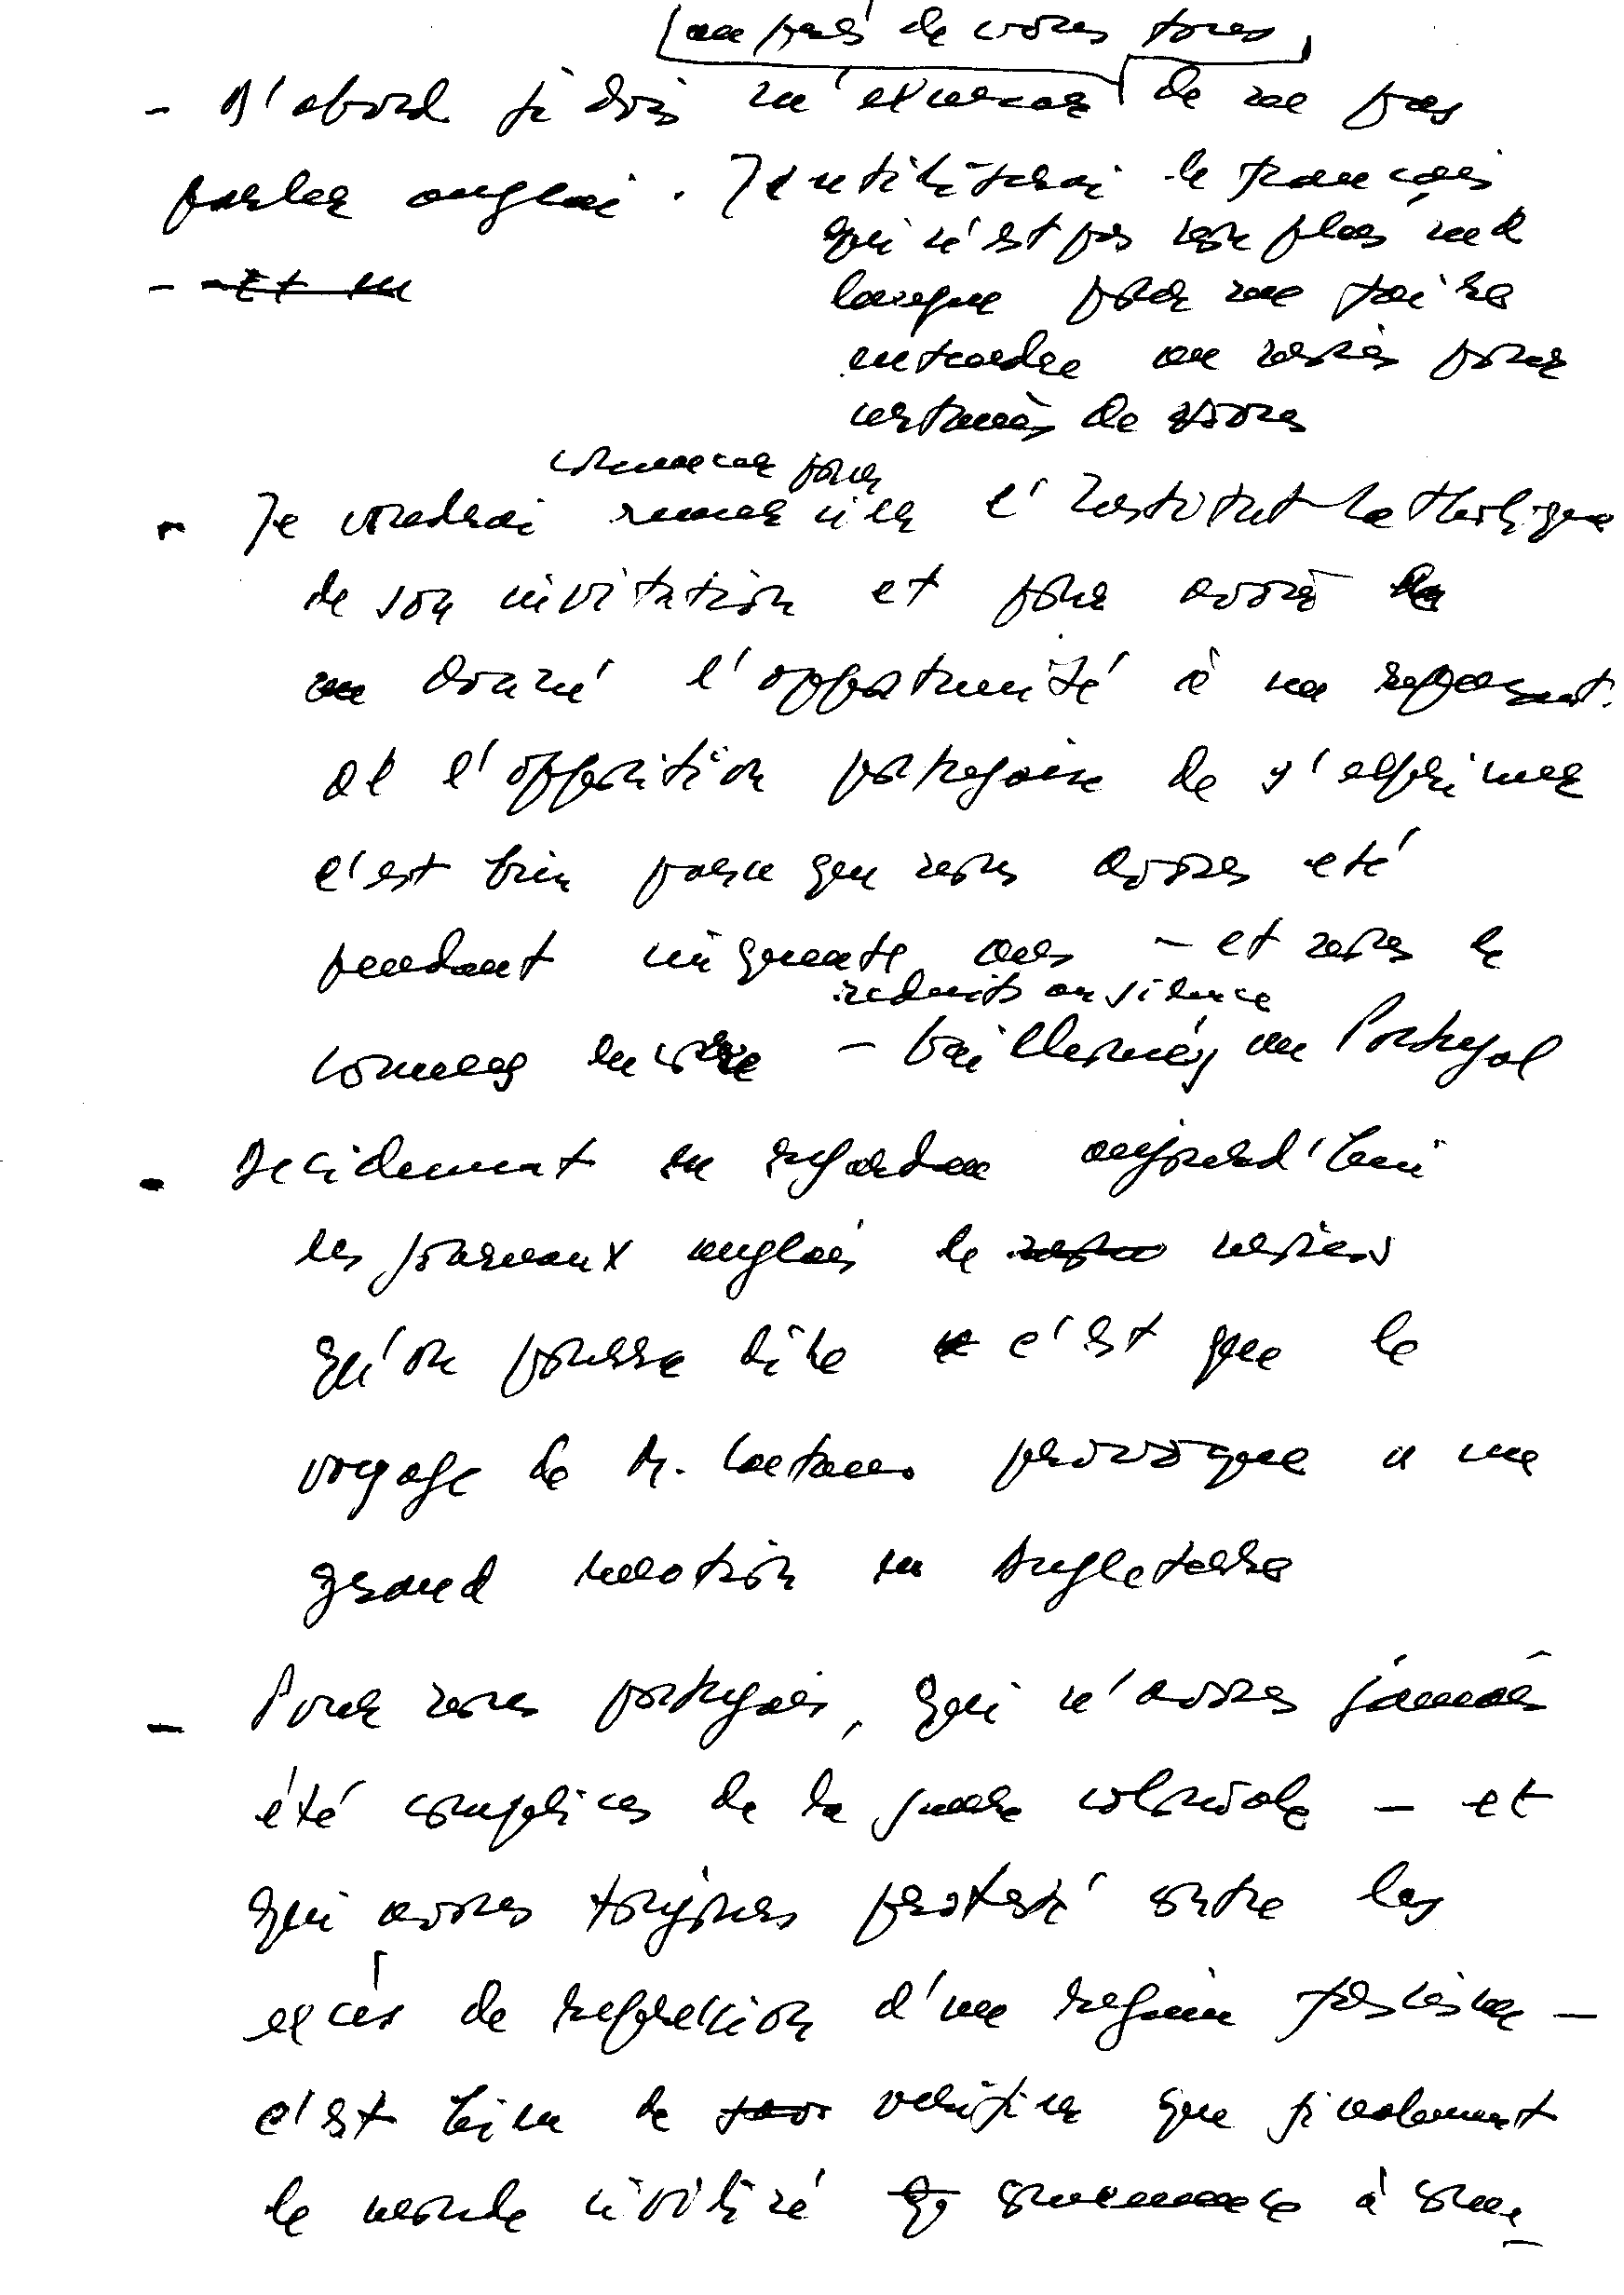 auprès de vous tous
- D'abord je dois m'excuser de ne pas
parler anglai. J'utiliserai le français
qui n'est pas non plus ma
langue pour me faire
entendre au moins pour
certains de vous
- Et en
commencer pour
- Je voudrai remercier l'Institut Catholique
de son invitation et pour avoir
donné l'opportunité à un
de l'opposition portugaise de s'exprimer
c'est bien parce que nous avons eté
pendant cinquante ans - et nous le
reduits au silence
sommes encore - baillonnés au Portugal
- Decidement en regardan aujourd'hui
les journaux anglais le moins
qu'on pousse dire c'est que le
voyage de M. Caetano provoque une
grand emotion en Angleterre
- Pour nous portugais, qui n'avons jamais
été complices de la guerre coloniale - et
qui avons toujours protesté contre les
excès de repression d'un regime fasciste -
c'est bien de verifier que finalement
le monde civilizé commence à